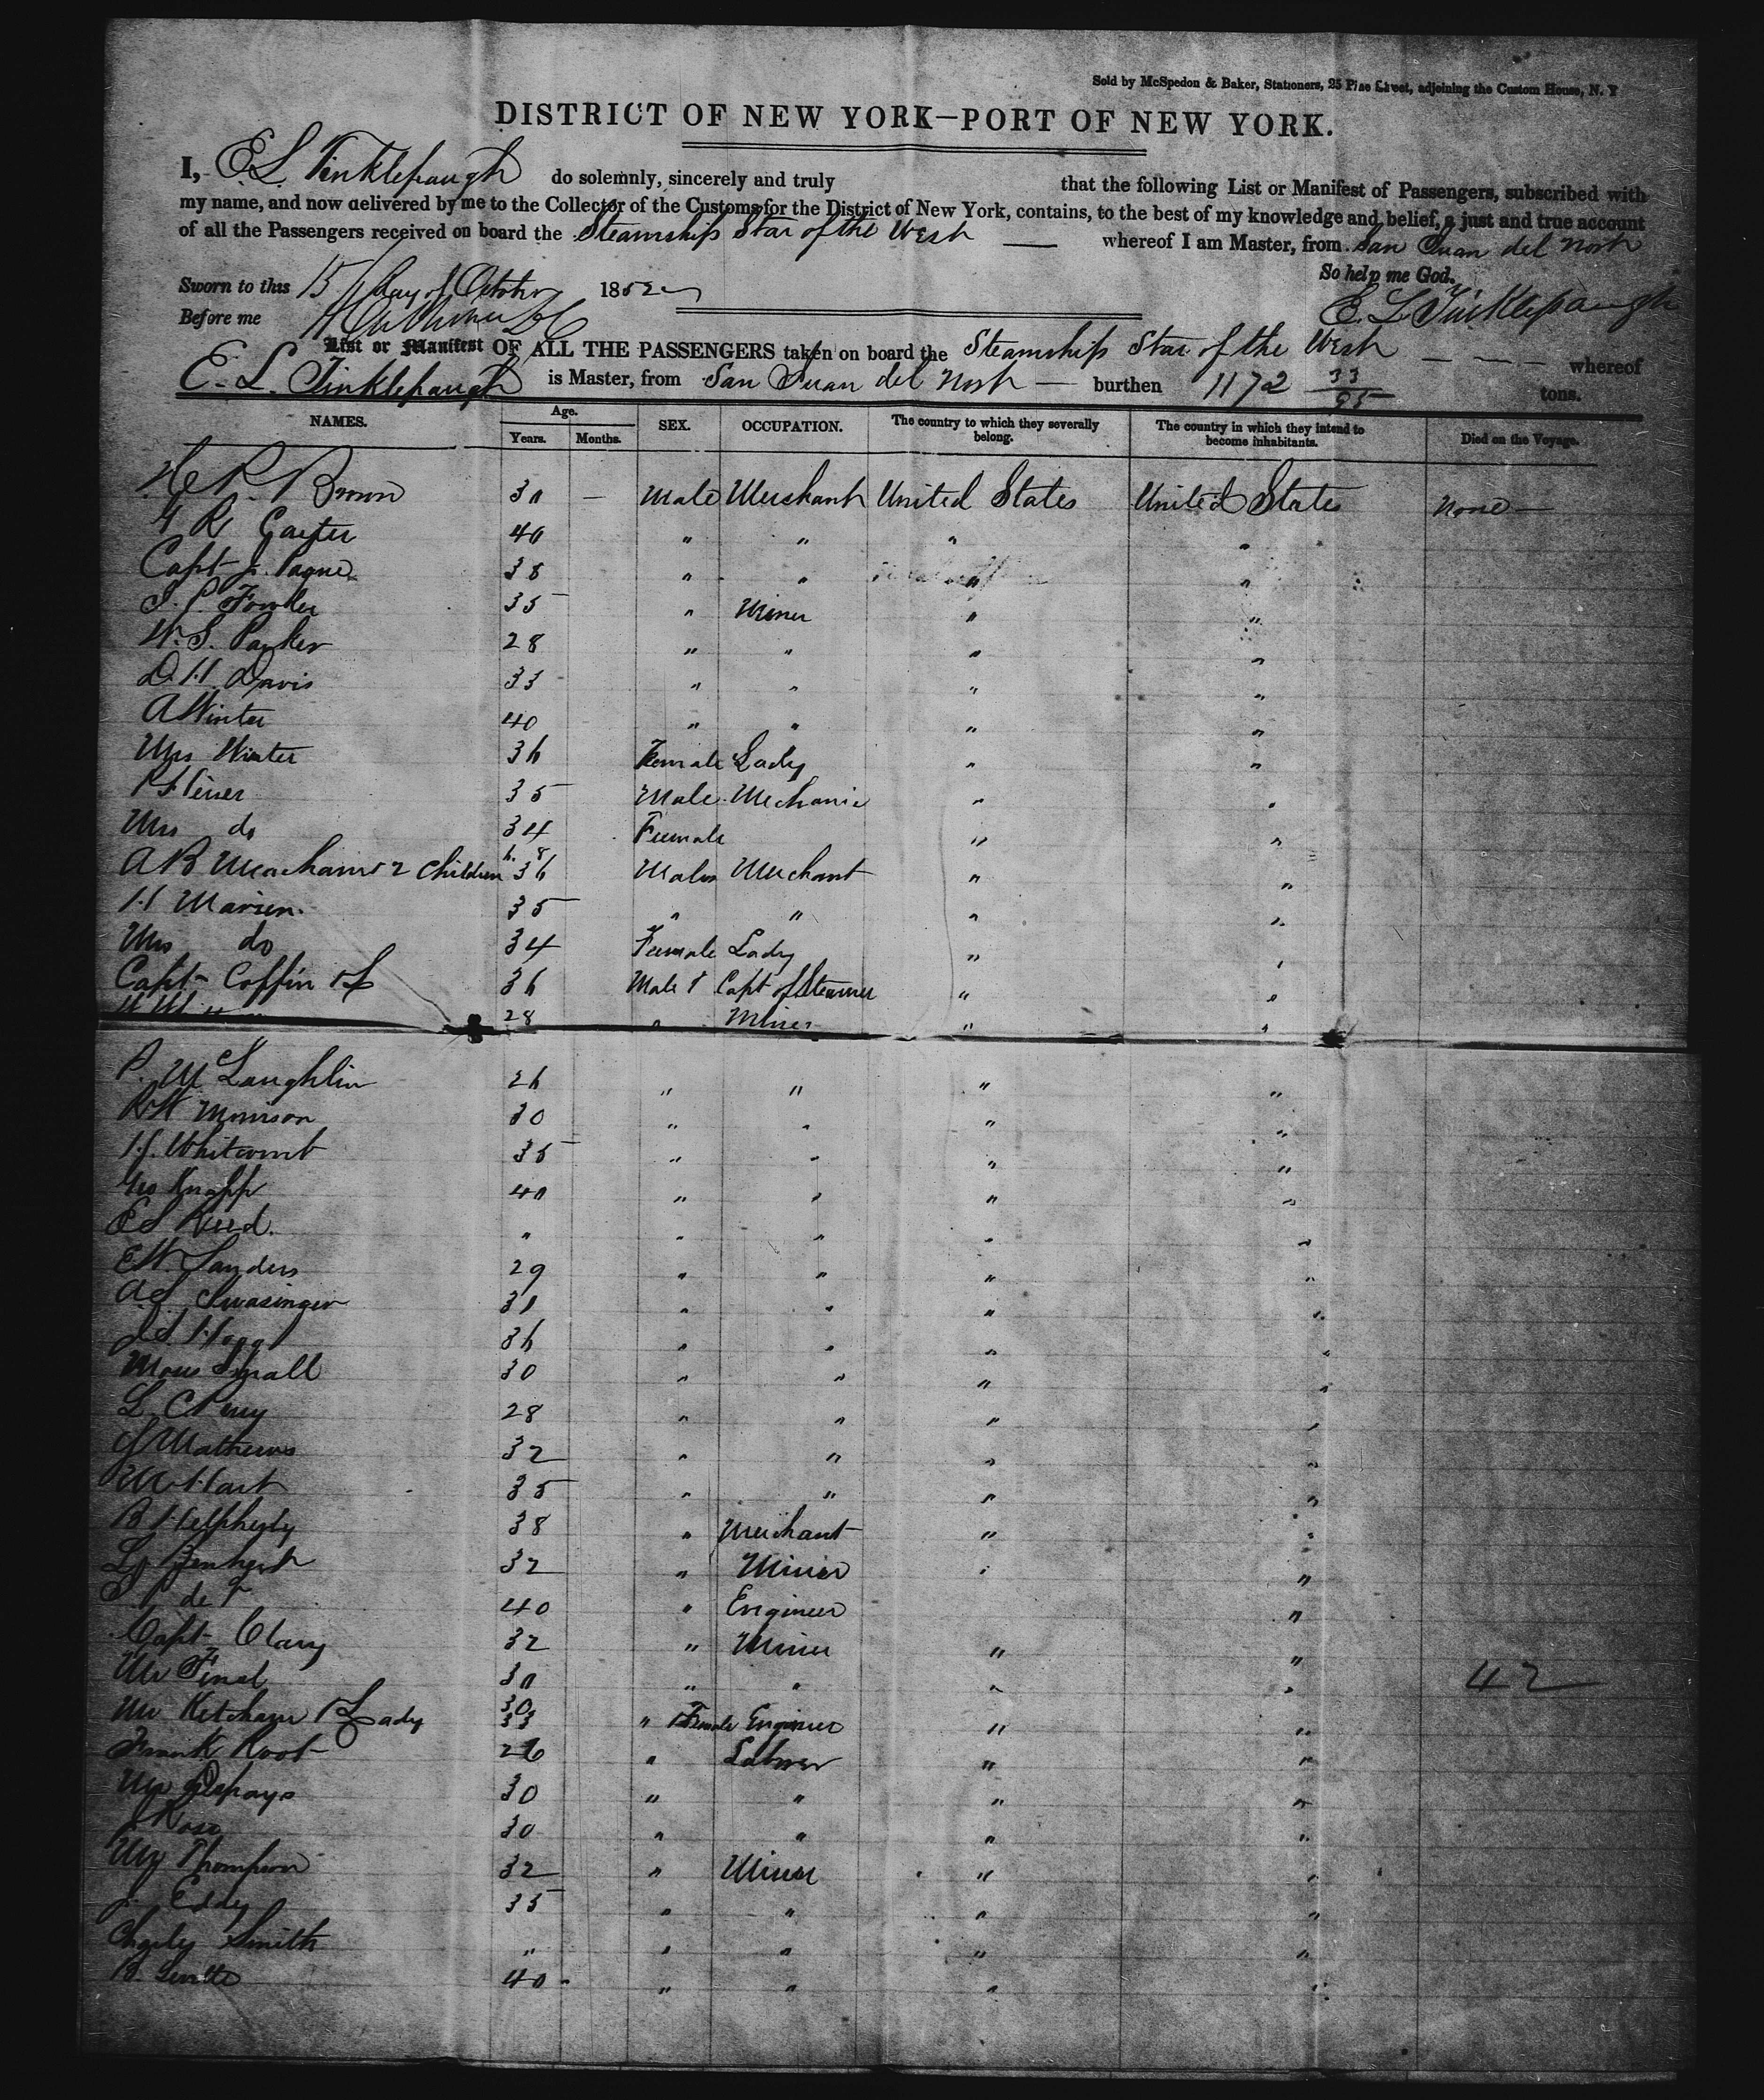 Sold by McSpedon & Baker, Stationers, 25 Pine Street, adjoining the Custom House, N. Y
DISTRICT OF NEW YORK—PORT OF NEW YORK.
I, E. L. Tinklepaugh do solemnly, sincerely and truly that the following List or Manifest of Passengers, subscribed with
my name, and now delivered by me to the Collector of the Customs for the District of New York, contains, to the best of my knowledge and belief, a just and true account
of all the Passengers received on board the Steamship Star of the West — whereof I am Master, from San Juan del Norte
So help me God.
Sworn to this 15 day of October 1852
E. L. Tinklepaugh
Before me
List or Manifest OF ALL THE PASSENGERS taken on board the Steamship Star of the West — whereof
E. L. Tinklepaugh is Master, from San Juan del Norte — burthen 1172 33/95 tons.
NAMES. Age. Years. Months. SEX. OCCUPATION. The country to which they severally belong. The country in which they intend to become inhabitants. Died on the Voyage.
Brown 30 — Male Merchant United States United States None —
40 " " " "
Capt J. Payne 38 " " " "
Fowler 35 " Miner " "
W. S. Parker 28 " " " "
D. H. Davis 33 " " " "
A Winter 40 " " " "
Mrs Winter 36 Female Lady " "
35 Male Mechanic " "
Mrs do 34 Female " "
A B Meacham & 2 Children 6. 8 36 Males Merchant " "
H 35 " " " "
Mrs do 34 Female Lady " "
Capt Coffin 36 Male Capt of Steamer " "
28 " Miner " "
P. McLaughlin 26 " " " "
R W Morrison 30 " " " "
H. Whitcomb 35 " " " "
Geo Knapp 40 " " " "
E S Reed. " " " " "
E W. Sanders 29 " " " "
A. S. Swasinger 31 " " " "
J. S. Hogg 36 " " " "
Small 30 " " " "
L. C Perry 28 " " " "
Mathews 32 " " " "
Hart 35 " " " "
B 38 " Merchant " "
L. 32 " Miner " "
40 " Engineer "
Capt Clary 32 " Miner " "
Mr Final 30 " " " " 42
Mr Ketcham & Lady 30 33 " & Female Engineer " "
Frank Root 26 " Laborer " "
30 " " " "
J Rose 30 " " " "
Thompson 32 " Miner " "
J. Eddy 35 " " " "
Charley Smith " " " " "
B. 40 " " " "